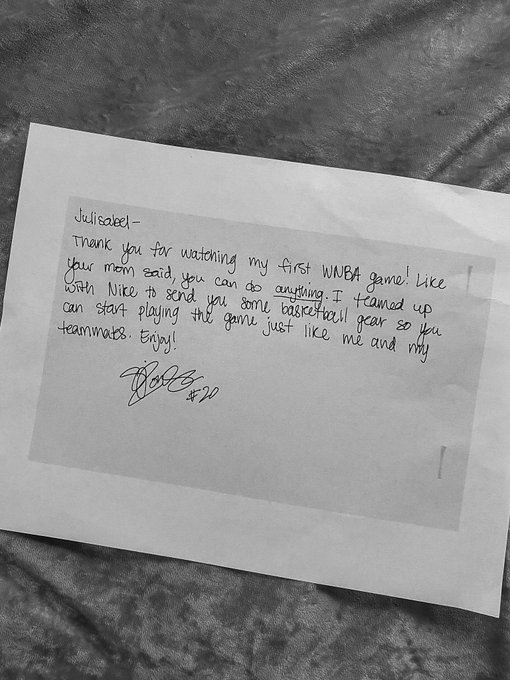 Julisabel-
Thank you for watching my first WNBA game! Like
your mom said, you can do anything. I teamed up
with Nike to send you some basketball gear so you
can start playing the game just like me and my
teammates. Enjoy!
#20